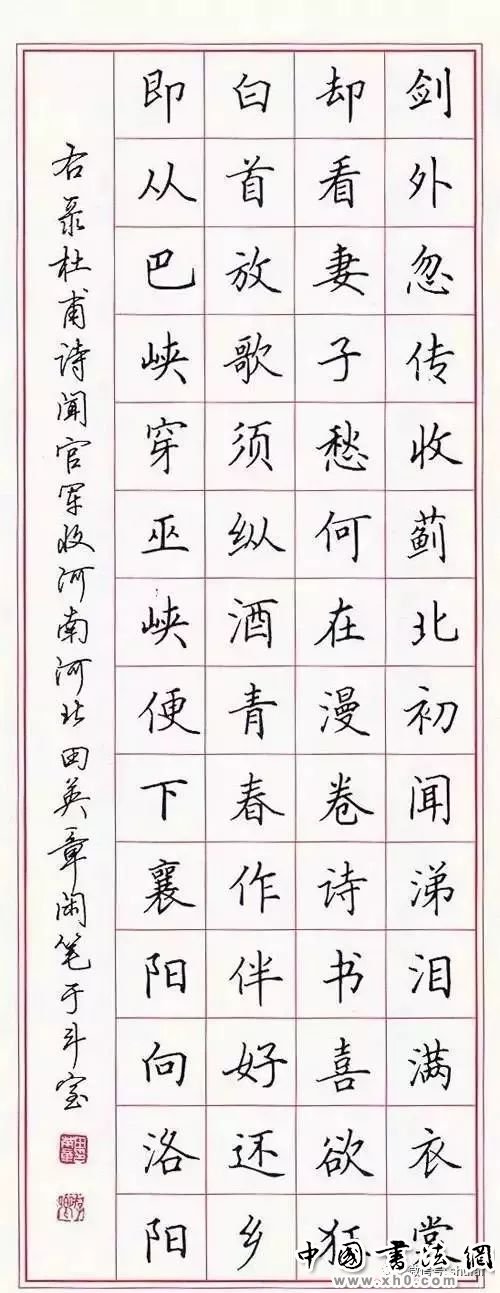 剑外忽传收蓟北初闻涕泪满衣裳
却看妻子愁何在漫卷诗书喜欲狂
白首放歌须纵酒青春作伴好还乡
即从巴峡穿巫峡便下襄阳向洛阳
右录杜甫诗闻官军收河南河北田英章闲笔于斗室
中國書法網
www.xh0.com